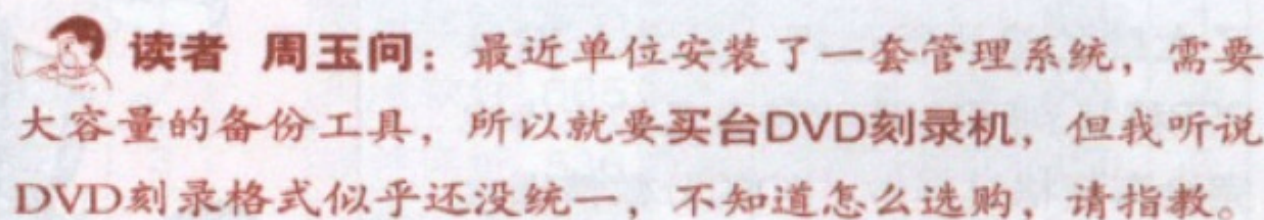 读者 周玉问：最近单位安装了一套管理系统，需要
大容量的备份工具，所以就要买台DVD刻录机，但我听说
DVD刻录格式似乎还没统一，不知道怎么选购，请指教。